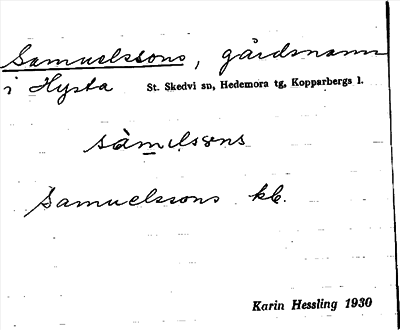 Samuelssons, gårdsnamn
i Hysta St. Skedvi sn, Hedemora tg, Kopparbergs l.
sàmulsens
Samuelssons kb.
Karin Hessling 1930